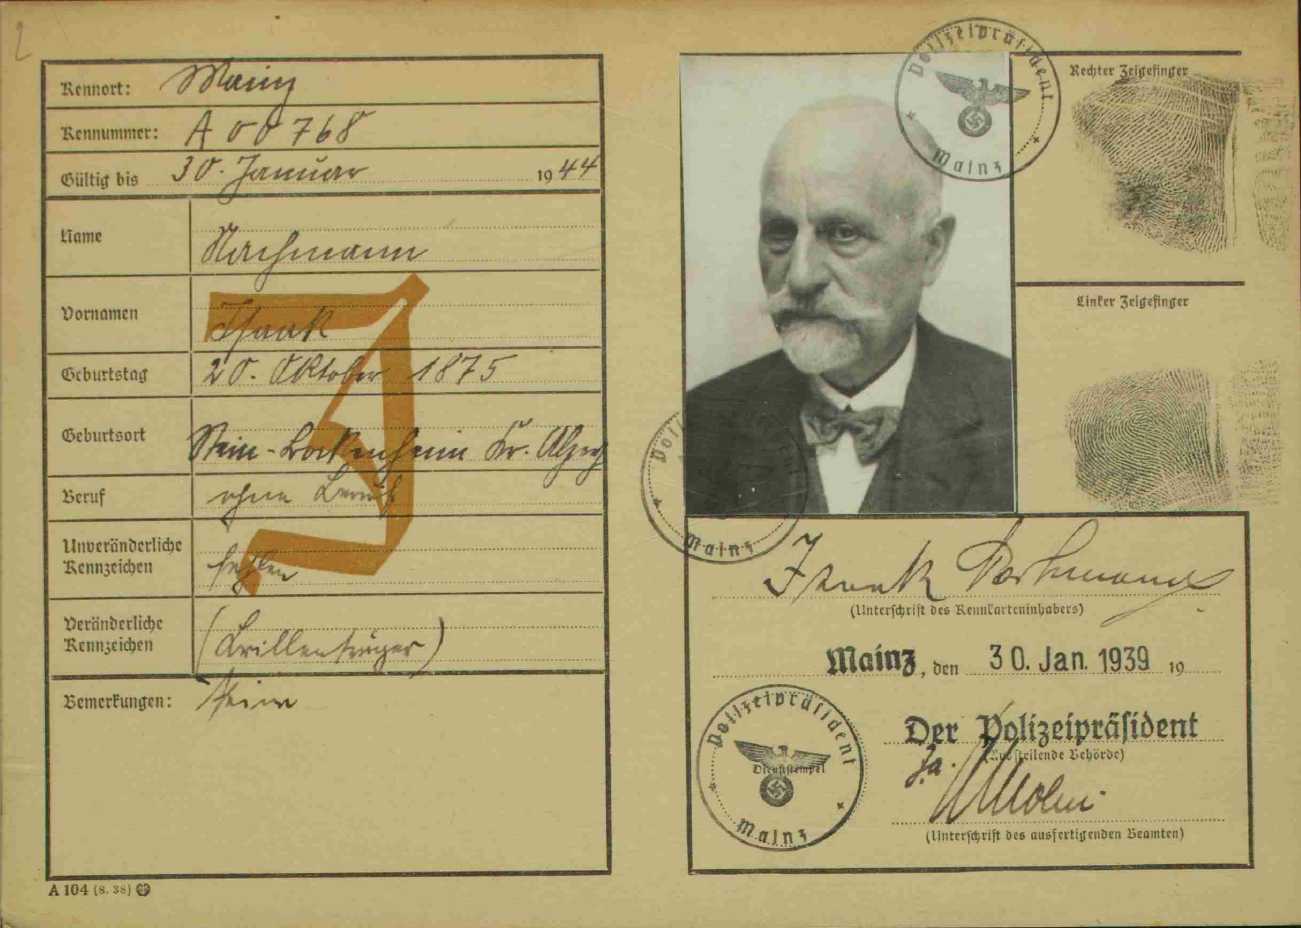 2
Kennort: Mainz
Kennummer: A 00768
Gültig bis 30. Januar 1944
Name Nachmann
Vornamen Isaak
Geburtstag 20. Oktober 1875
Geburtsort Stein-Bockenheim Kr. Alzey
Beruf ohne Beruf
Unveränderliche
Kennzeichen fehlen
Veränderliche
Kennzeichen (Brillenträger)
Bemerkungen: Keine
J
A 104 (8. 38)
Polizeipräsident
Mainz
Rechter Zeigefinger
Linker Zeigefinger
Polizeipräsident
Mainz
Isaak Nachmann
(Unterschrift des Kennkarteninhabers)
Mainz, den 30. Jan. 1939 19
Polizeipräsident
Dienststempel
Mainz
Der Polizeipräsident
(Ausstellende Behörde)
(Unterschrift des ausfertigenden Beamten)